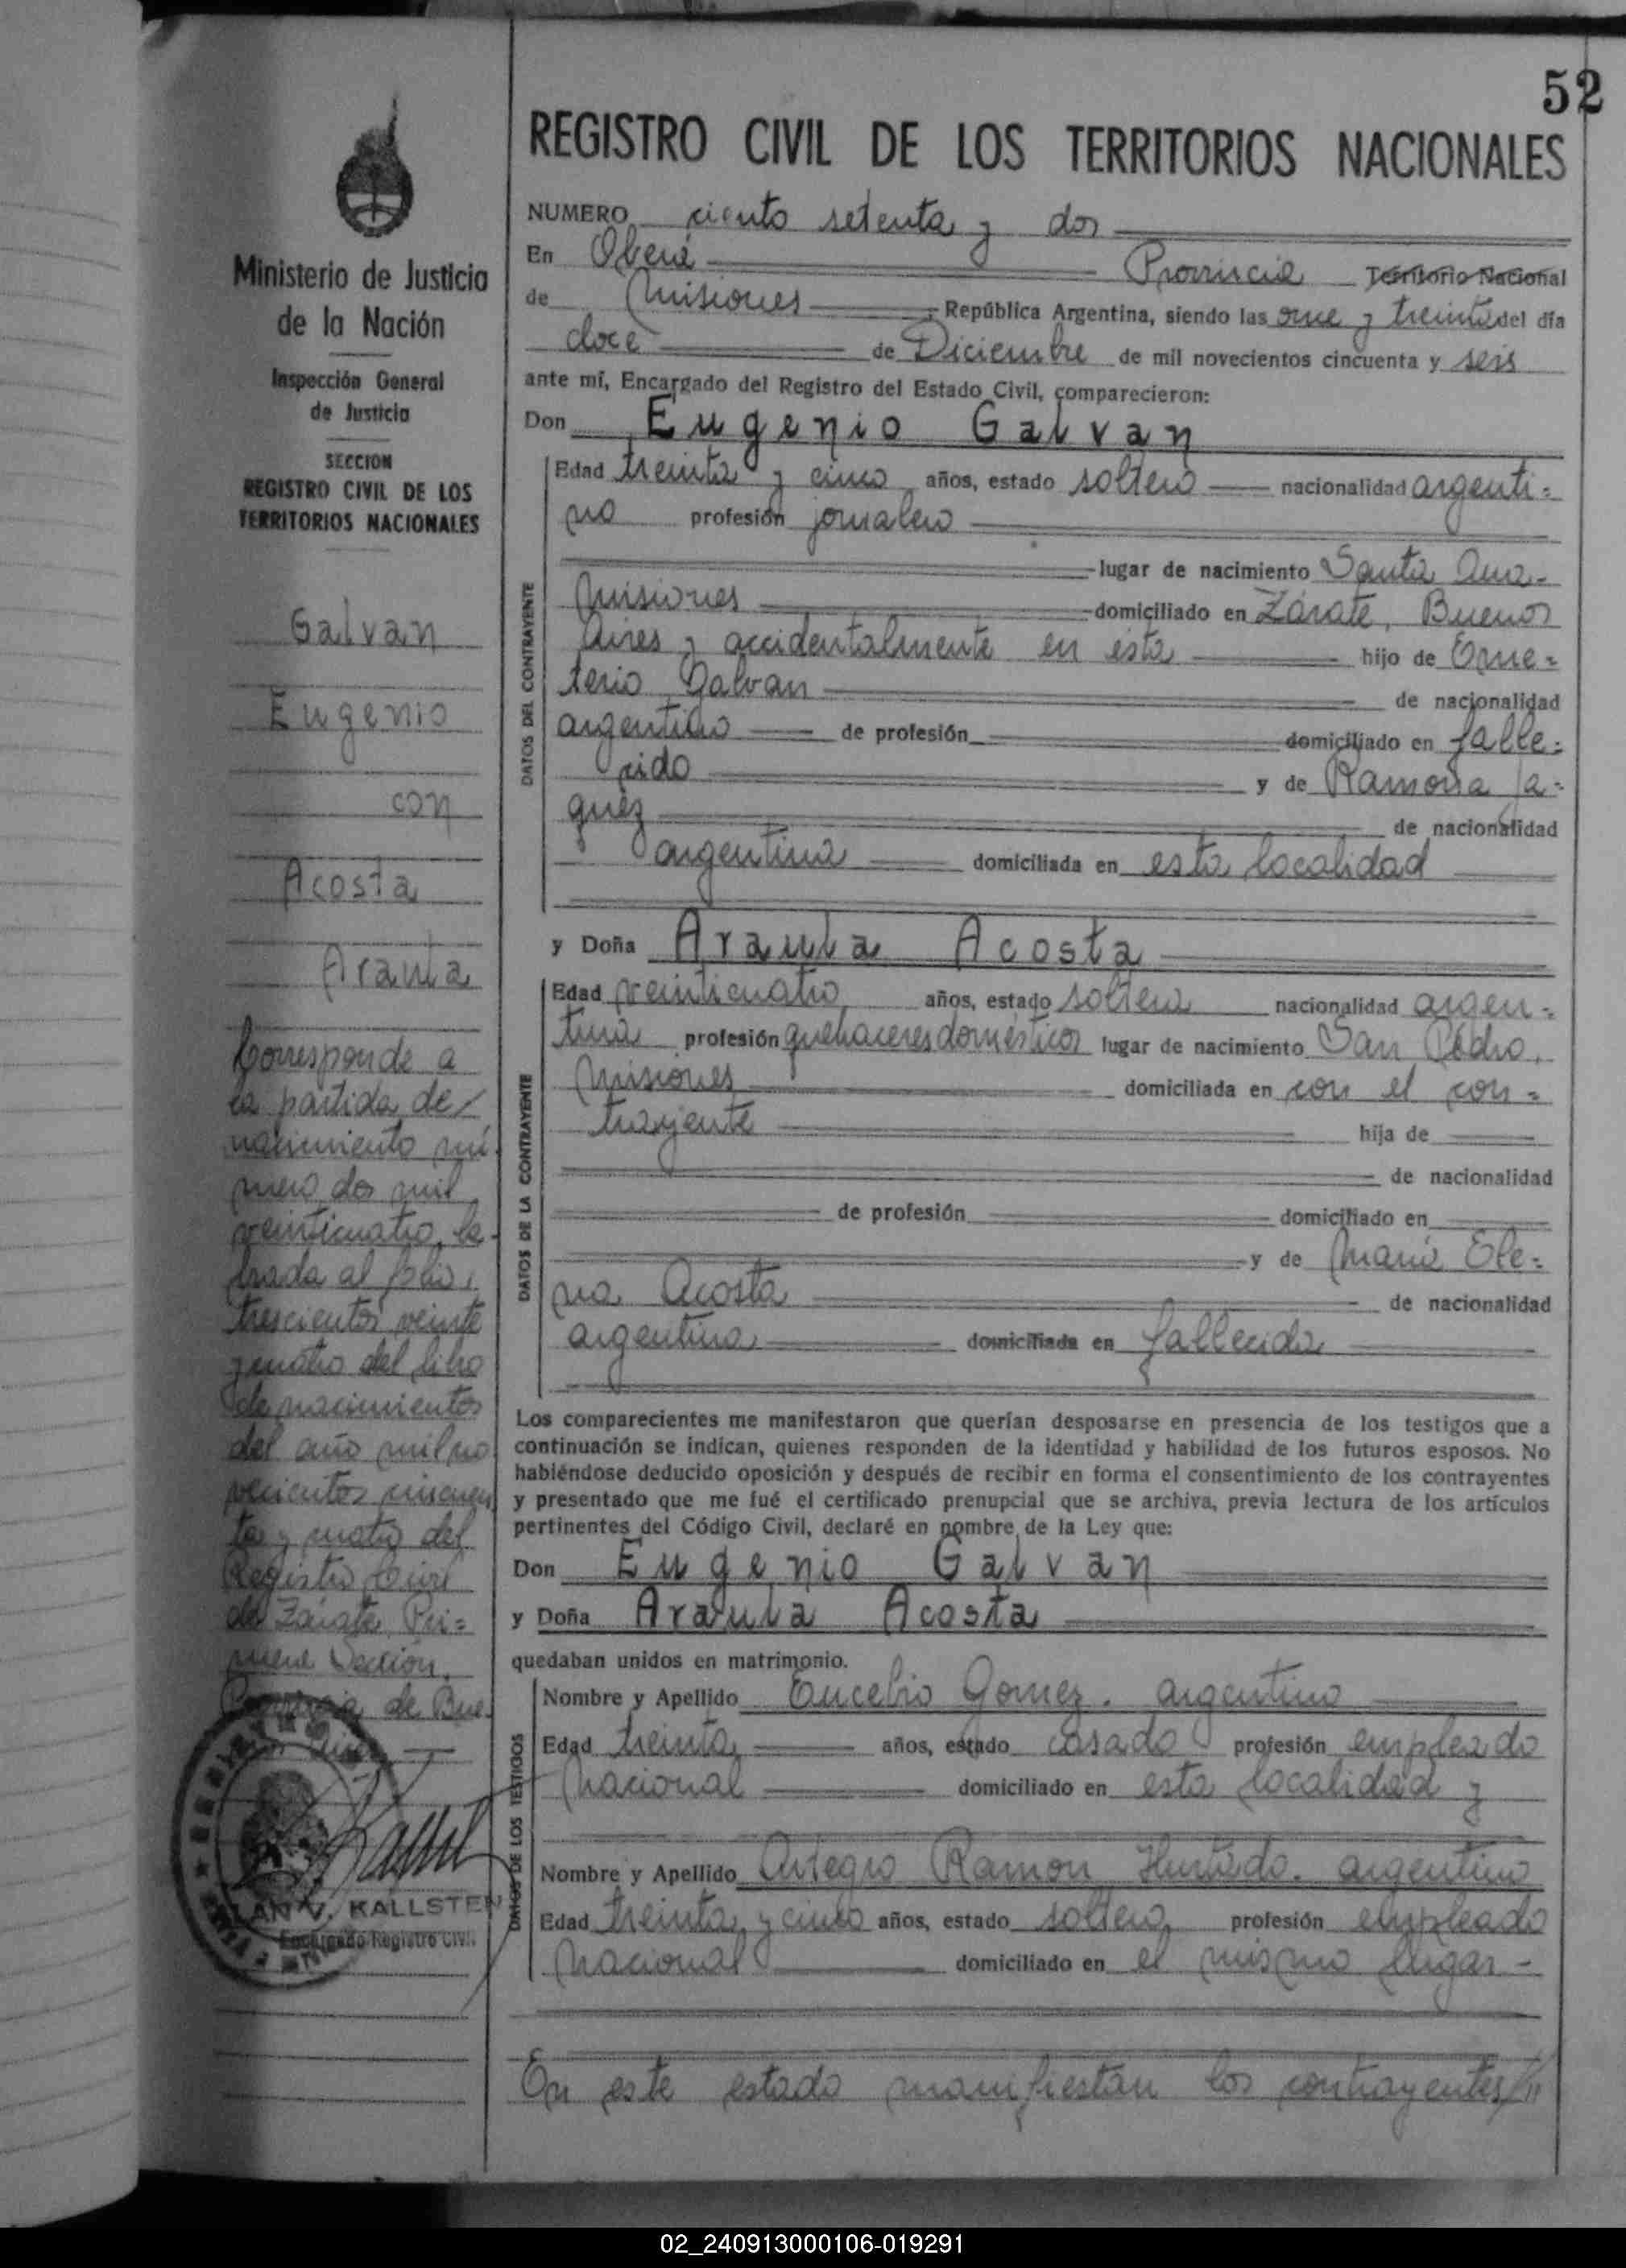 52
REGISTRO CIVIL DE LOS TERRITORIOS NACIONALES
Ministerio de Justicia
de la Nación
Inspección General
de Justicia
SECCION
REGISTRO CIVIL DE LOS
TERRITORIOS NACIONALES
Galvan
Eugenio
con
Acosta
Aranla
Corresponde a
la partida de
nacimiento nú
mero dos mil
veinticuatro, la
brada al folio
trescientos veinte
y cuatro del libro
de nacimientos
del año mil no
vecientos cincuen
ta y cuatro del
Registro Civil
de Zárate, Pri=
mera Sección,
Provincia de Bue
KALLSTEN
Encargado Registro Civil
NUMERO ciento setenta y dos
En Oberá Provincia Territorio Nacional
de Misiones República Argentina, siendo las once y treinta del día
doce de Diciembre de mil novecientos cincuenta y seis
ante mí, Encargado del Registro del Estado Civil, comparecieron:
Don Eugenio Galvan
DATOS DEL CONTRAYENTE
Edad treinta y cinco años, estado soltero nacionalidad argenti=
no profesión jornalero
lugar de nacimiento Santa Ana-
Misiones domiciliado en Zárate, Buenos
Aires y accidentalmente en ésta hijo de Eme=
terio Galvan de nacionalidad
argentino de profesión domiciliado en falle=
cido y de Ramona Ja=
quéz de nacionalidad
argentina domiciliada en esta localidad
y Doña Aranla Acosta
DATOS DE LA CONTRAYENTE
Edad veinticuatro años, estado soltera nacionalidad argen=
tina profesión quehaceres domésticos lugar de nacimiento San Pedro,
Misiones domiciliada en con el con=
trayente hija de
de nacionalidad
de profesión domiciliado en
y de María Ele=
na Acosta de nacionalidad
argentina domiciliada en fallecida
Los comparecientes me manifestaron que querían desposarse en presencia de los testigos que a
continuación se indican, quienes responden de la identidad y habilidad de los futuros esposos. No
habiéndose deducido oposición y después de recibir en forma el consentimiento de los contrayentes
y presentado que me fué el certificado prenupcial que se archiva, previa lectura de los artículos
pertinentes del Código Civil, declaré en nombre de la Ley que:
Don Eugenio Galvan
y Doña Aranla Acosta
quedaban unidos en matrimonio.
DATOS DE LOS TESTIGOS
Nombre y Apellido Eucebio Gomez. argentino
Edad treinta años, estado casado profesión empleado
nacional domiciliado en esta localidad y
Nombre y Apellido Artegio Ramon Hurtado. argentino
Edad treinta y cinco años, estado soltero profesión empleado
nacional domiciliado en el mismo lugar-
En este estado manifiestan los contrayentes
02_240913000106-019291